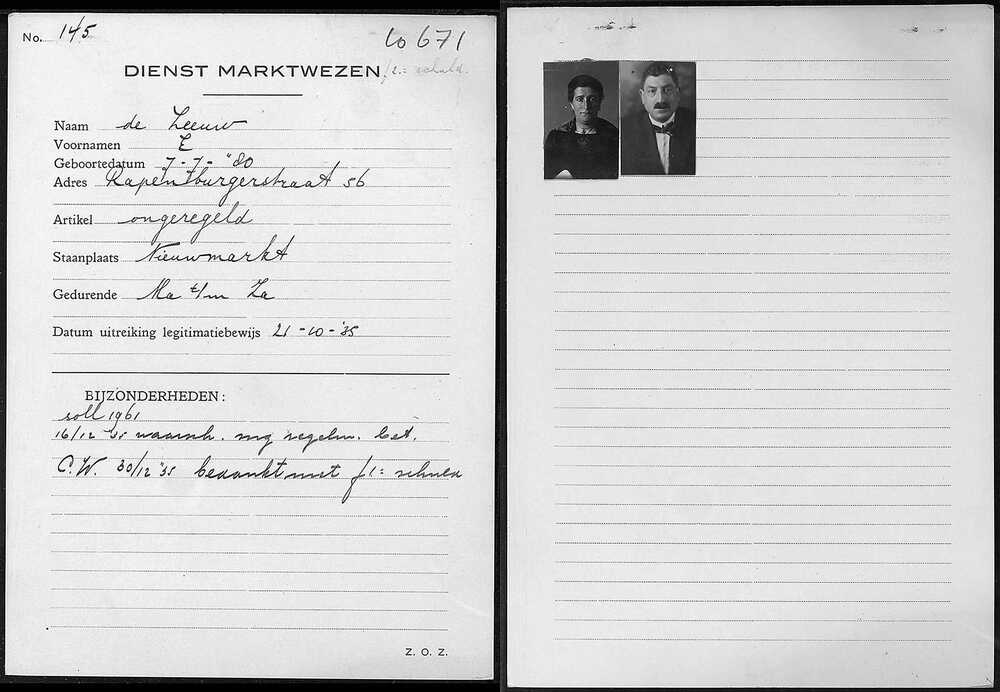 No. 145
10671
DIENST MARKTWEZEN f 1.= schuld.
Naam de Leeuw
Voornamen E
Geboortedatum 7-7-'80
Adres Rapenburgerstraat 56
Artikel ongeregeld
Staanplaats Nieuwmarkt
Gedurende Ma t/m Za
Datum uitreiking legitimatiebewijs 21-10-'35
BIJZONDERHEDEN:
soll 1961
16/12 '35 waarsch. regelm. bet.
C.W. 30/12 '35 bedankt met f 1= schuld
Z. O. Z.